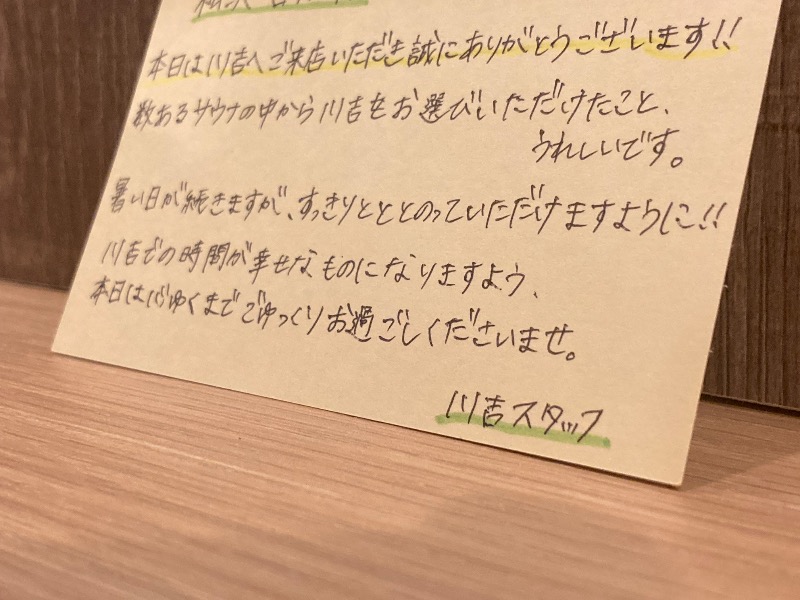 本日は川吉へご来店いただき誠にありがとうございます!!
数あるサウナの中から川吉をお選びいただけたこと、
うれしいです。
暑い日が続きますが、すっきりとととのっていただけますように!!
川吉での時間が幸せなものになりますよう、
本日は心ゆくまでごゆっくりお過ごしくださいませ。
川吉スタッフ